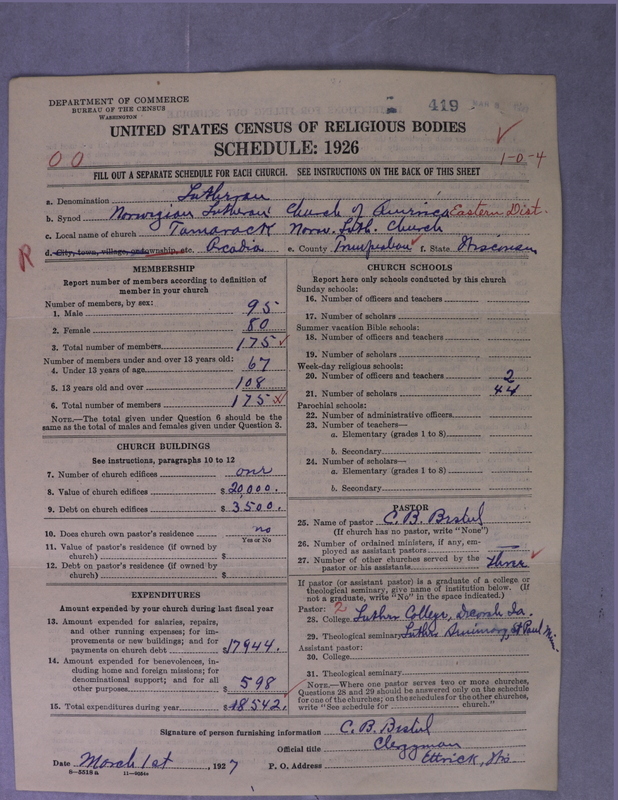 DEPARTMENT OF COMMERCE
BUREAU OF THE CENSUS
WASHINGTON
419
UNITED STATES CENSUS OF RELIGIOUS BODIES
SCHEDULE: 1926
0 0
1-0-4
FILL OUT A SEPARATE SCHEDULE FOR EACH CHURCH. SEE INSTRUCTIONS ON THE BACK OF THIS SHEET
a. Denomination Lutheran
b. Synod Norwegian Lutheran Church of America Eastern Dist.
c. Local name of church Tamarack Norw. Luth. Church
R
d. City, town, village, or township, etc. Arcadia e. County Trempealeau f. State Wisconsin
MEMBERSHIP
Report number of members according to definition of member in your church
Number of members, by sex:
1. Male 95
2. Female 80
3. Total number of members 175
Number of members under and over 13 years old:
4. Under 13 years of age 67
5. 13 years old and over 108
6. Total number of members 175
NOTE.—The total given under Question 6 should be the same as the total of males and females given under Question 3.
CHURCH BUILDINGS
See instructions, paragraphs 10 to 12
7. Number of church edifices one
8. Value of church edifices $ 20,000.
9. Debt on church edifices $ 3500.
10. Does church own pastor's residence? no
Yes or No
11. Value of pastor's residence (if owned by church) $
12. Debt on pastor's residence (if owned by church) $
EXPENDITURES
Amount expended by your church during last fiscal year
13. Amount expended for salaries, repairs, and other running expenses; for improvements or new buildings; and for payments on church debt $17944.
14. Amount expended for benevolences, including home and foreign missions; for denominational support; and for all other purposes $ 598
15. Total expenditures during year $18542.
CHURCH SCHOOLS
Report here only schools conducted by this church
Sunday schools:
16. Number of officers and teachers
17. Number of scholars
Summer vacation Bible schools:
18. Number of officers and teachers
19. Number of scholars
Week-day religious schools:
20. Number of officers and teachers 2
21. Number of scholars 44
Parochial schools:
22. Number of administrative officers
23. Number of teachers—
a. Elementary (grades 1 to 8)
b. Secondary
24. Number of scholars—
a. Elementary (grades 1 to 8)
b. Secondary
PASTOR
25. Name of pastor C. B.
(If church has no pastor, write "None")
26. Number of ordained ministers, if any, employed as assistant pastors
27. Number of other churches served by the pastor or his assistants three
If pastor (or assistant pastor) is a graduate of a college or theological seminary, give name of institution below. (If not a graduate, write "No" in the space indicated.)
Pastor: 2
28. College Luther College, Decorah Ia.
29. Theological seminary Luther Seminary, St Paul Minn
Assistant pastor:
30. College
31. Theological seminary
NOTE.—Where one pastor serves two or more churches, Questions 28 and 29 should be answered only on the schedule for one of the churches; on the schedules for the other churches, write "See schedule for church."
Signature of person furnishing information C. B.
Official title Clergyman
Date March 1st, 1927 P. O. Address Ettrick, Wis
8—5518 a